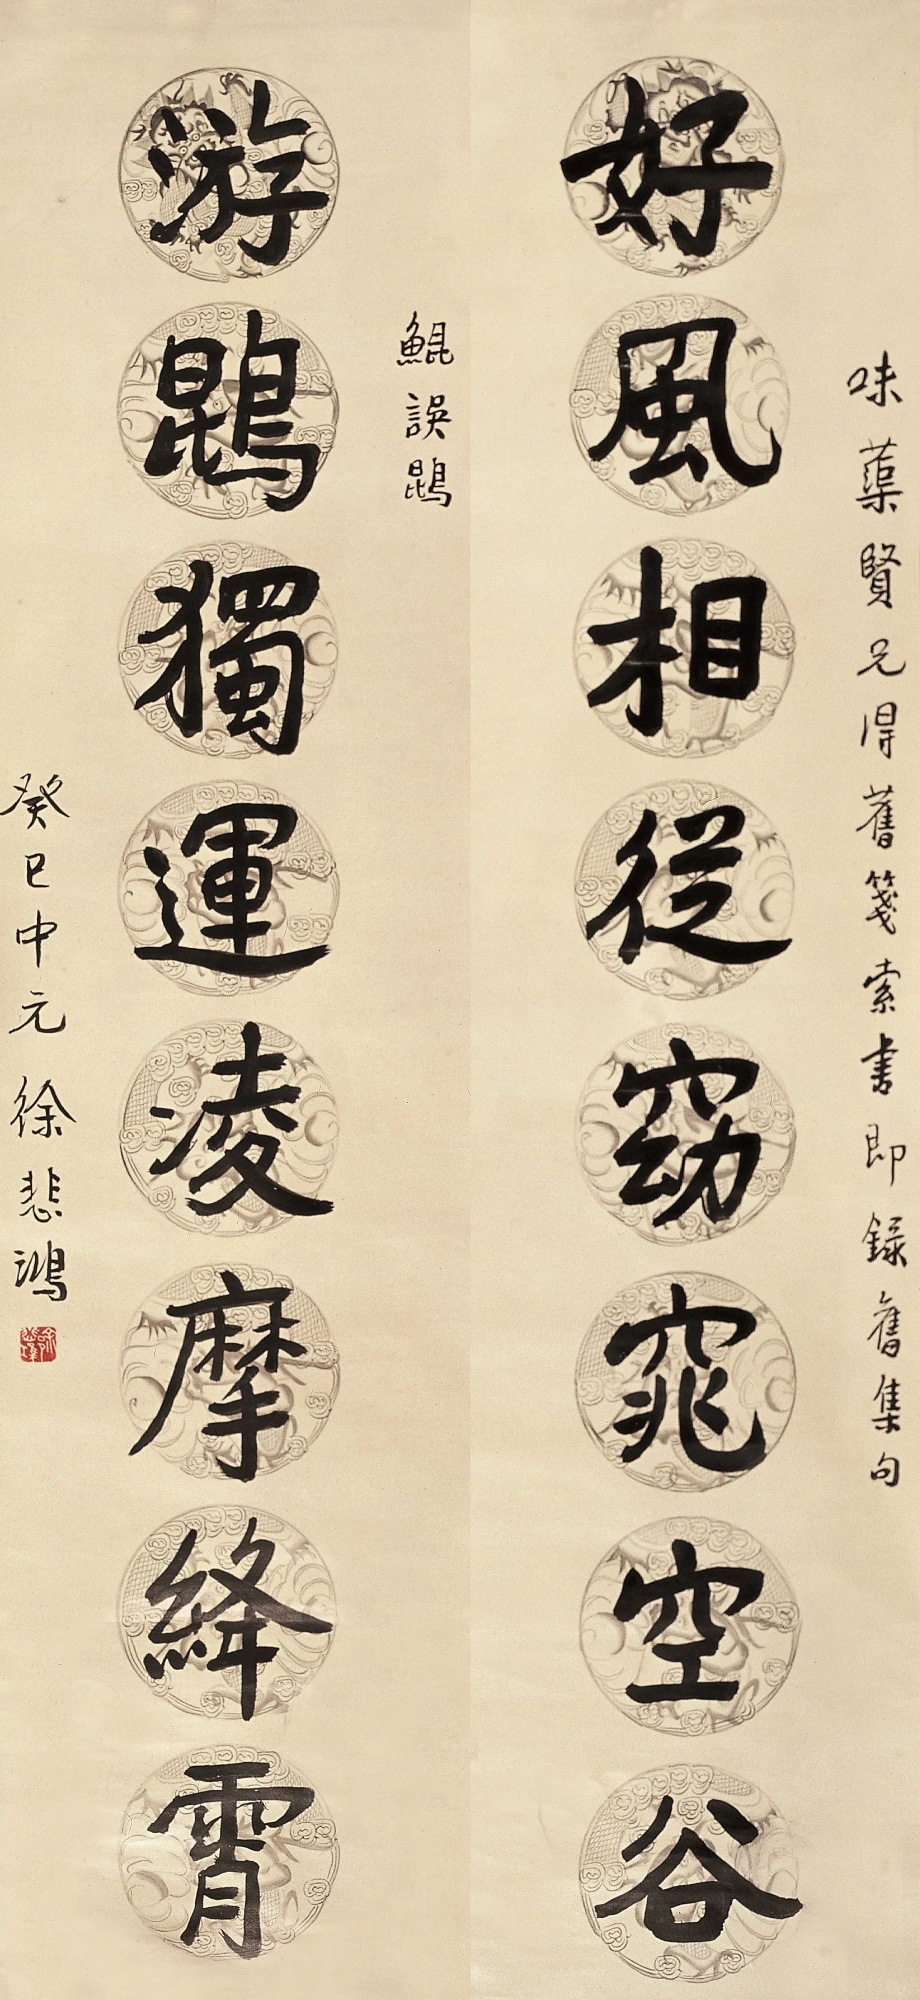 味蕖賢兄得舊箋索書即錄舊集句
好風相從窈窕空谷
鯤誤鵾
游鵾獨運凌摩絳霄
癸巳中元徐悲鴻